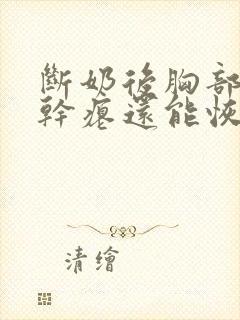 斷奶後胸部
幹癟還能恢
清繪